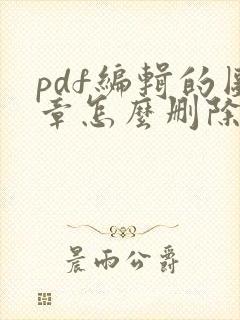 pdf編輯的圖
章怎麼刪除
晨雨公爵